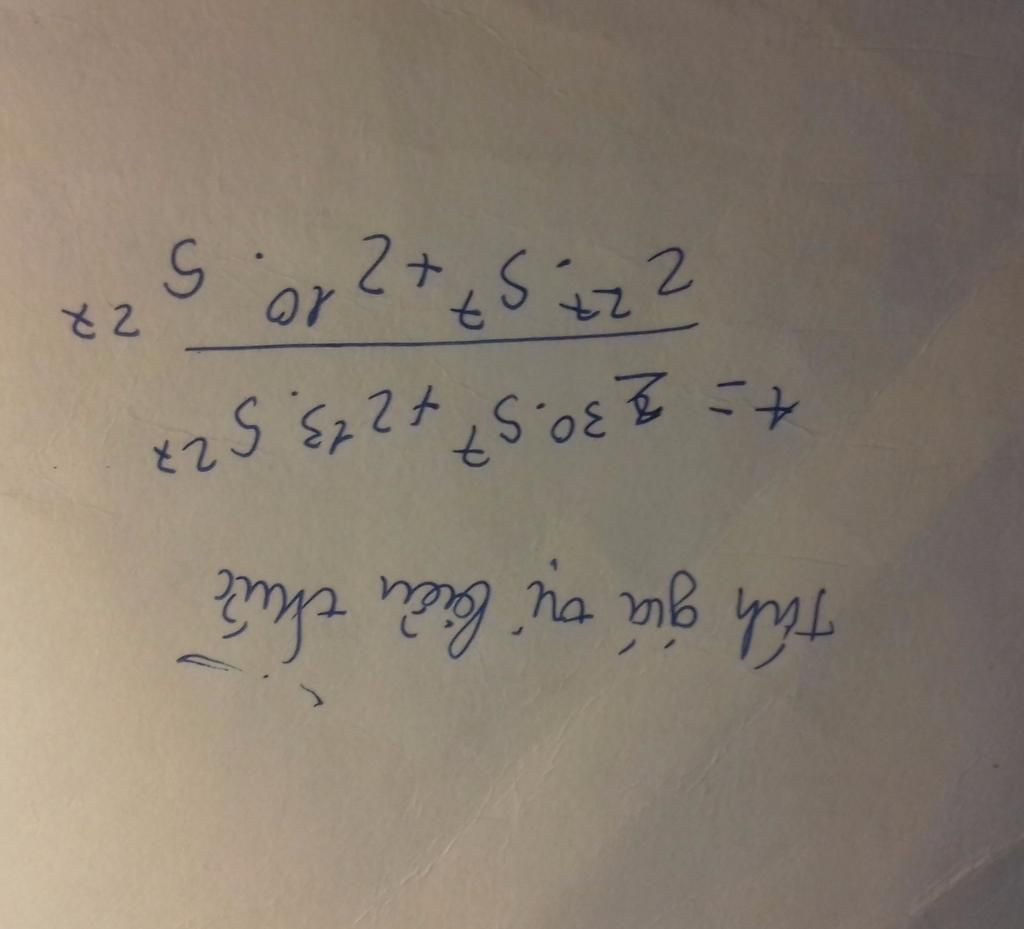 Tính giá trị biểu thức
A = 2^30 . 5^7 + 2^13 . 5^27
2^27 . 5^7 + 2^10 . 5^27